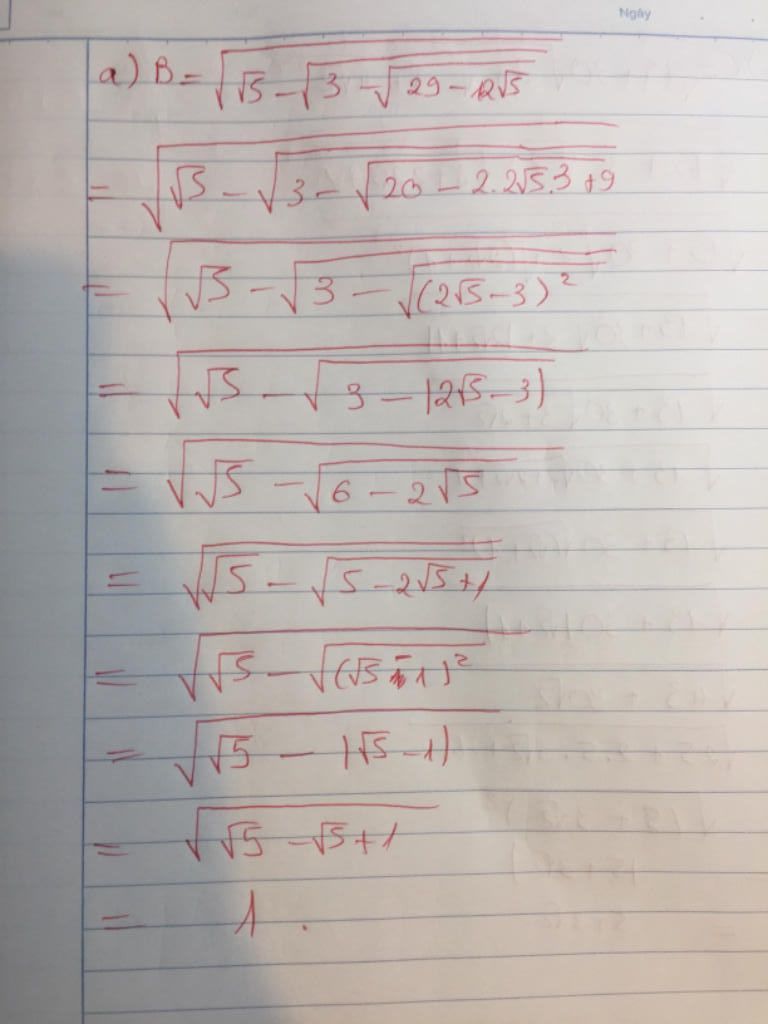 Ngày
a) B = √(√5 − √(3 − √(29 − 12√5)))
= √(√5 − √(3 − √(20 − 2.2√5.3 + 9)))
= √(√5 − √(3 − √((2√5 − 3)²)))
= √(√5 − √(3 − |2√5 − 3|))
= √(√5 − √(6 − 2√5))
= √(√5 − √(5 − 2√5 + 1))
= √(√5 − √((√5 − 1)²))
= √(√5 − |√5 − 1|)
= √(√5 − √5 + 1)
= 1 .